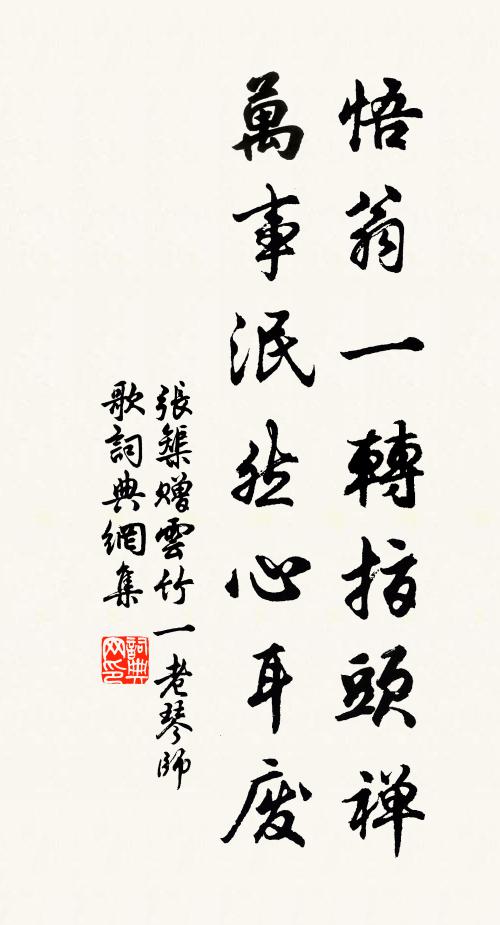 悟翁一轉指頭禅
萬事泯然心耳廢
張槃赠雲竹一老琴師
歌詞典網集
詞典网印